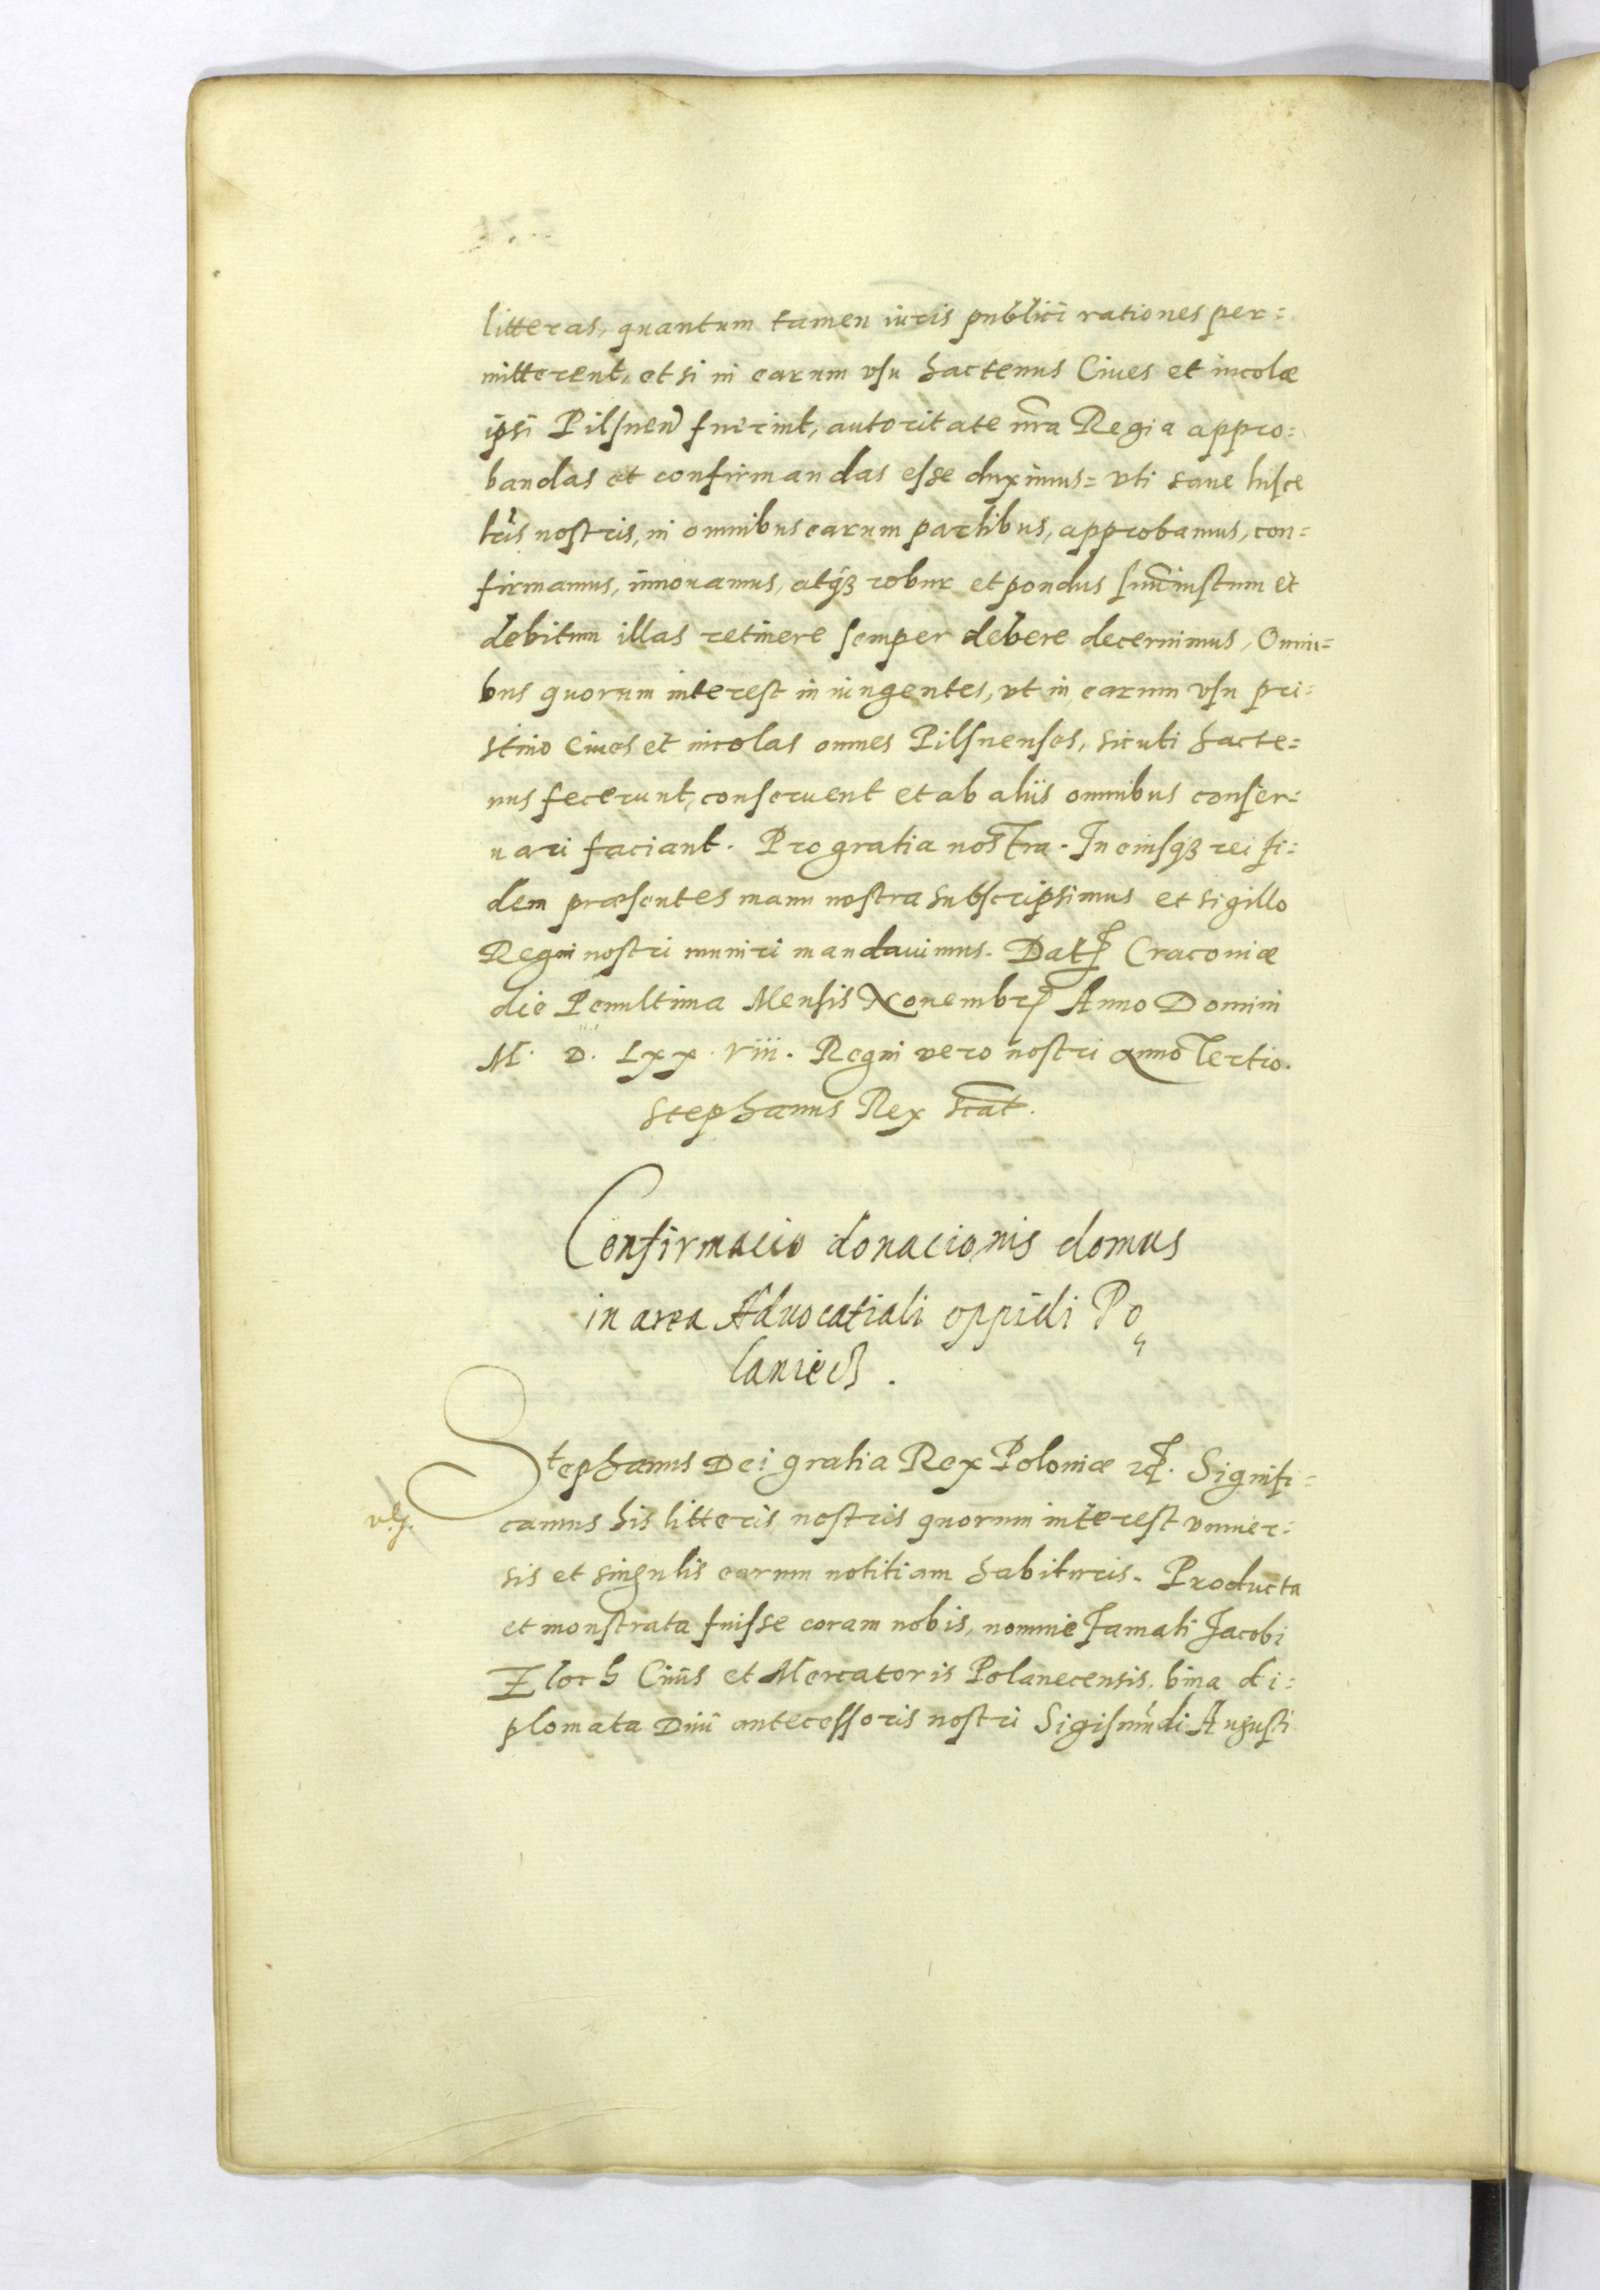 litteras, quantum tamen iuris publici rationes per=
mitterent, et si in earum vsu hactenus Ciues et incolæ
ipsi Pilsnen fuerint, autoritate nra Regia appro=
bandas et confirmandas esse duximus= vti sane hisce
lris nostris, in omnibus earum partibus, approbamus, con=
firmamus, innouamus, atqз robur et pondus suum iustum et
debitum illas retinere semper debere decernimus, Omni=
bus quorum interest iniungentes, vt in earum vsu pri=
stino Ciues et incolas omnes Pilsnenses, sicuti hacte=
nus fecerunt, conseruent et ab aliis omnibus conser=
uari faciant. Pro gratia nostra. In cuiusqз rei fi=
dem præsentes manu nostra subscripsimus et sigillo
Regni nostri muniri mandauimus. Datꝭ Cracouiæ
die Penultima Mensis Nouembrꝭ Anno Domini
M. D. Lxx. viii. Regni vero nostri anno Tertio.
Stephanus Rex scat.
Confirmacio donacionis domus
in area Aduocatiali oppidi Po
laniecz.
Stephanus Dei gratia Rex Poloniæ ꝛꝭ. Signifi=
camus his litteris nostris quorum interest vniuer=
sis et singulis earum notitiam habituris. Producta
et monstrata fuisse coram nobis, nomine Famati Jacobi
Zloch Ciuis et Mercatoris Polanecensis, bina di=
plomata Diui antecessoris nostri Sigismudi Augusti